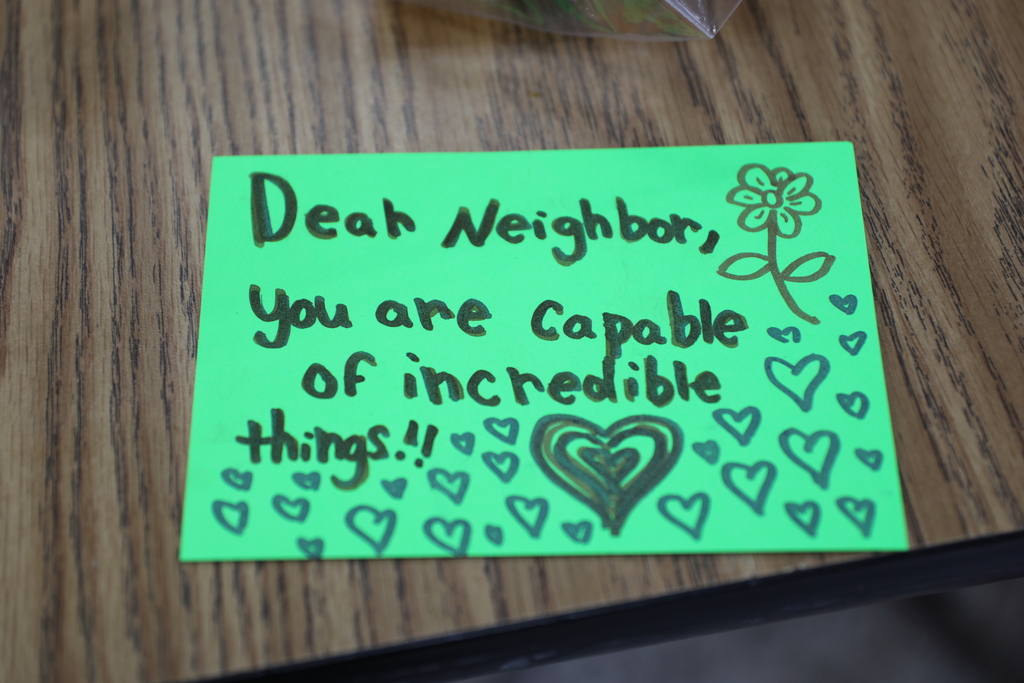 Dear Neighbor,
you are capable
of incredible
things.!!